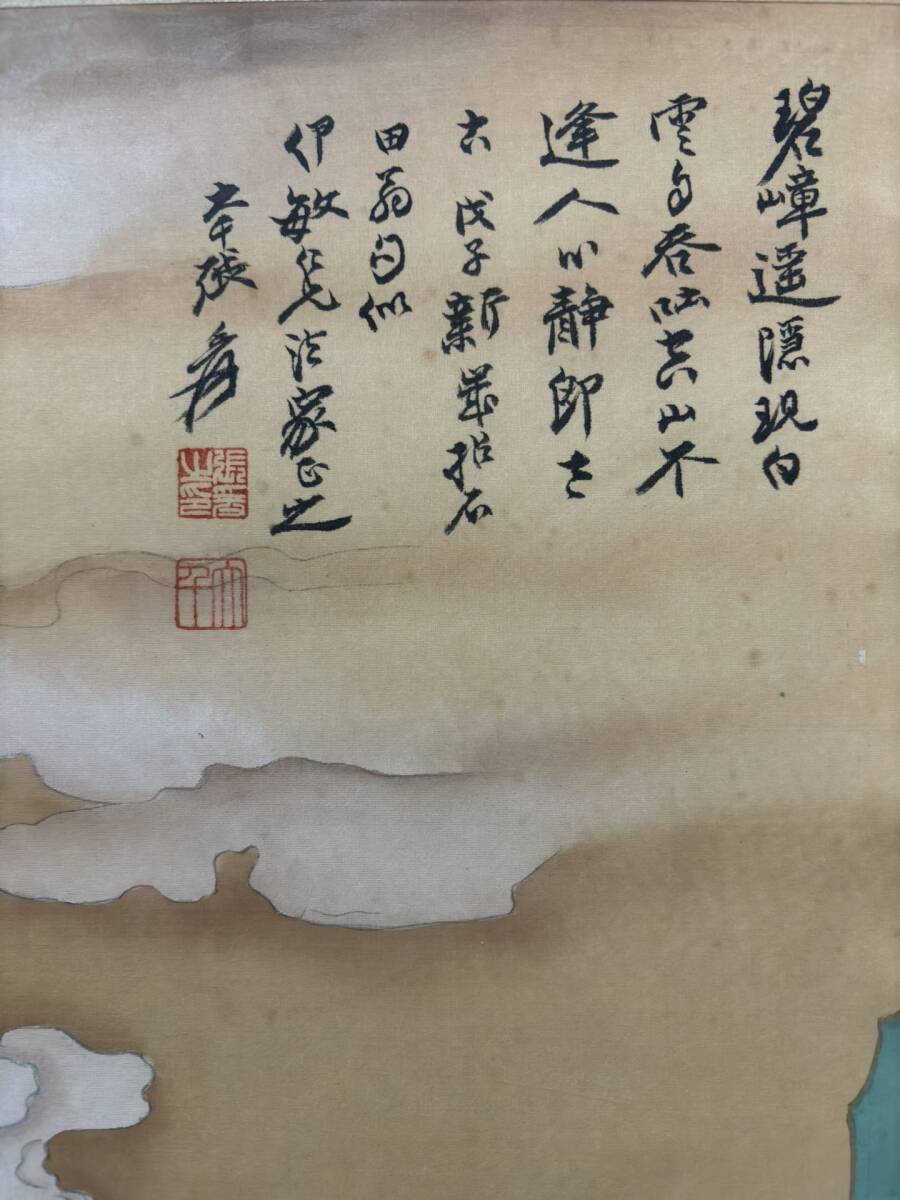 碧嶂遥隱現白
雲自吞吐空山不
逢人心靜即太
古 戊子新歲拈石
田翁句似
伊敏仁兄法家正之
大千張爰
張爰之印
大千